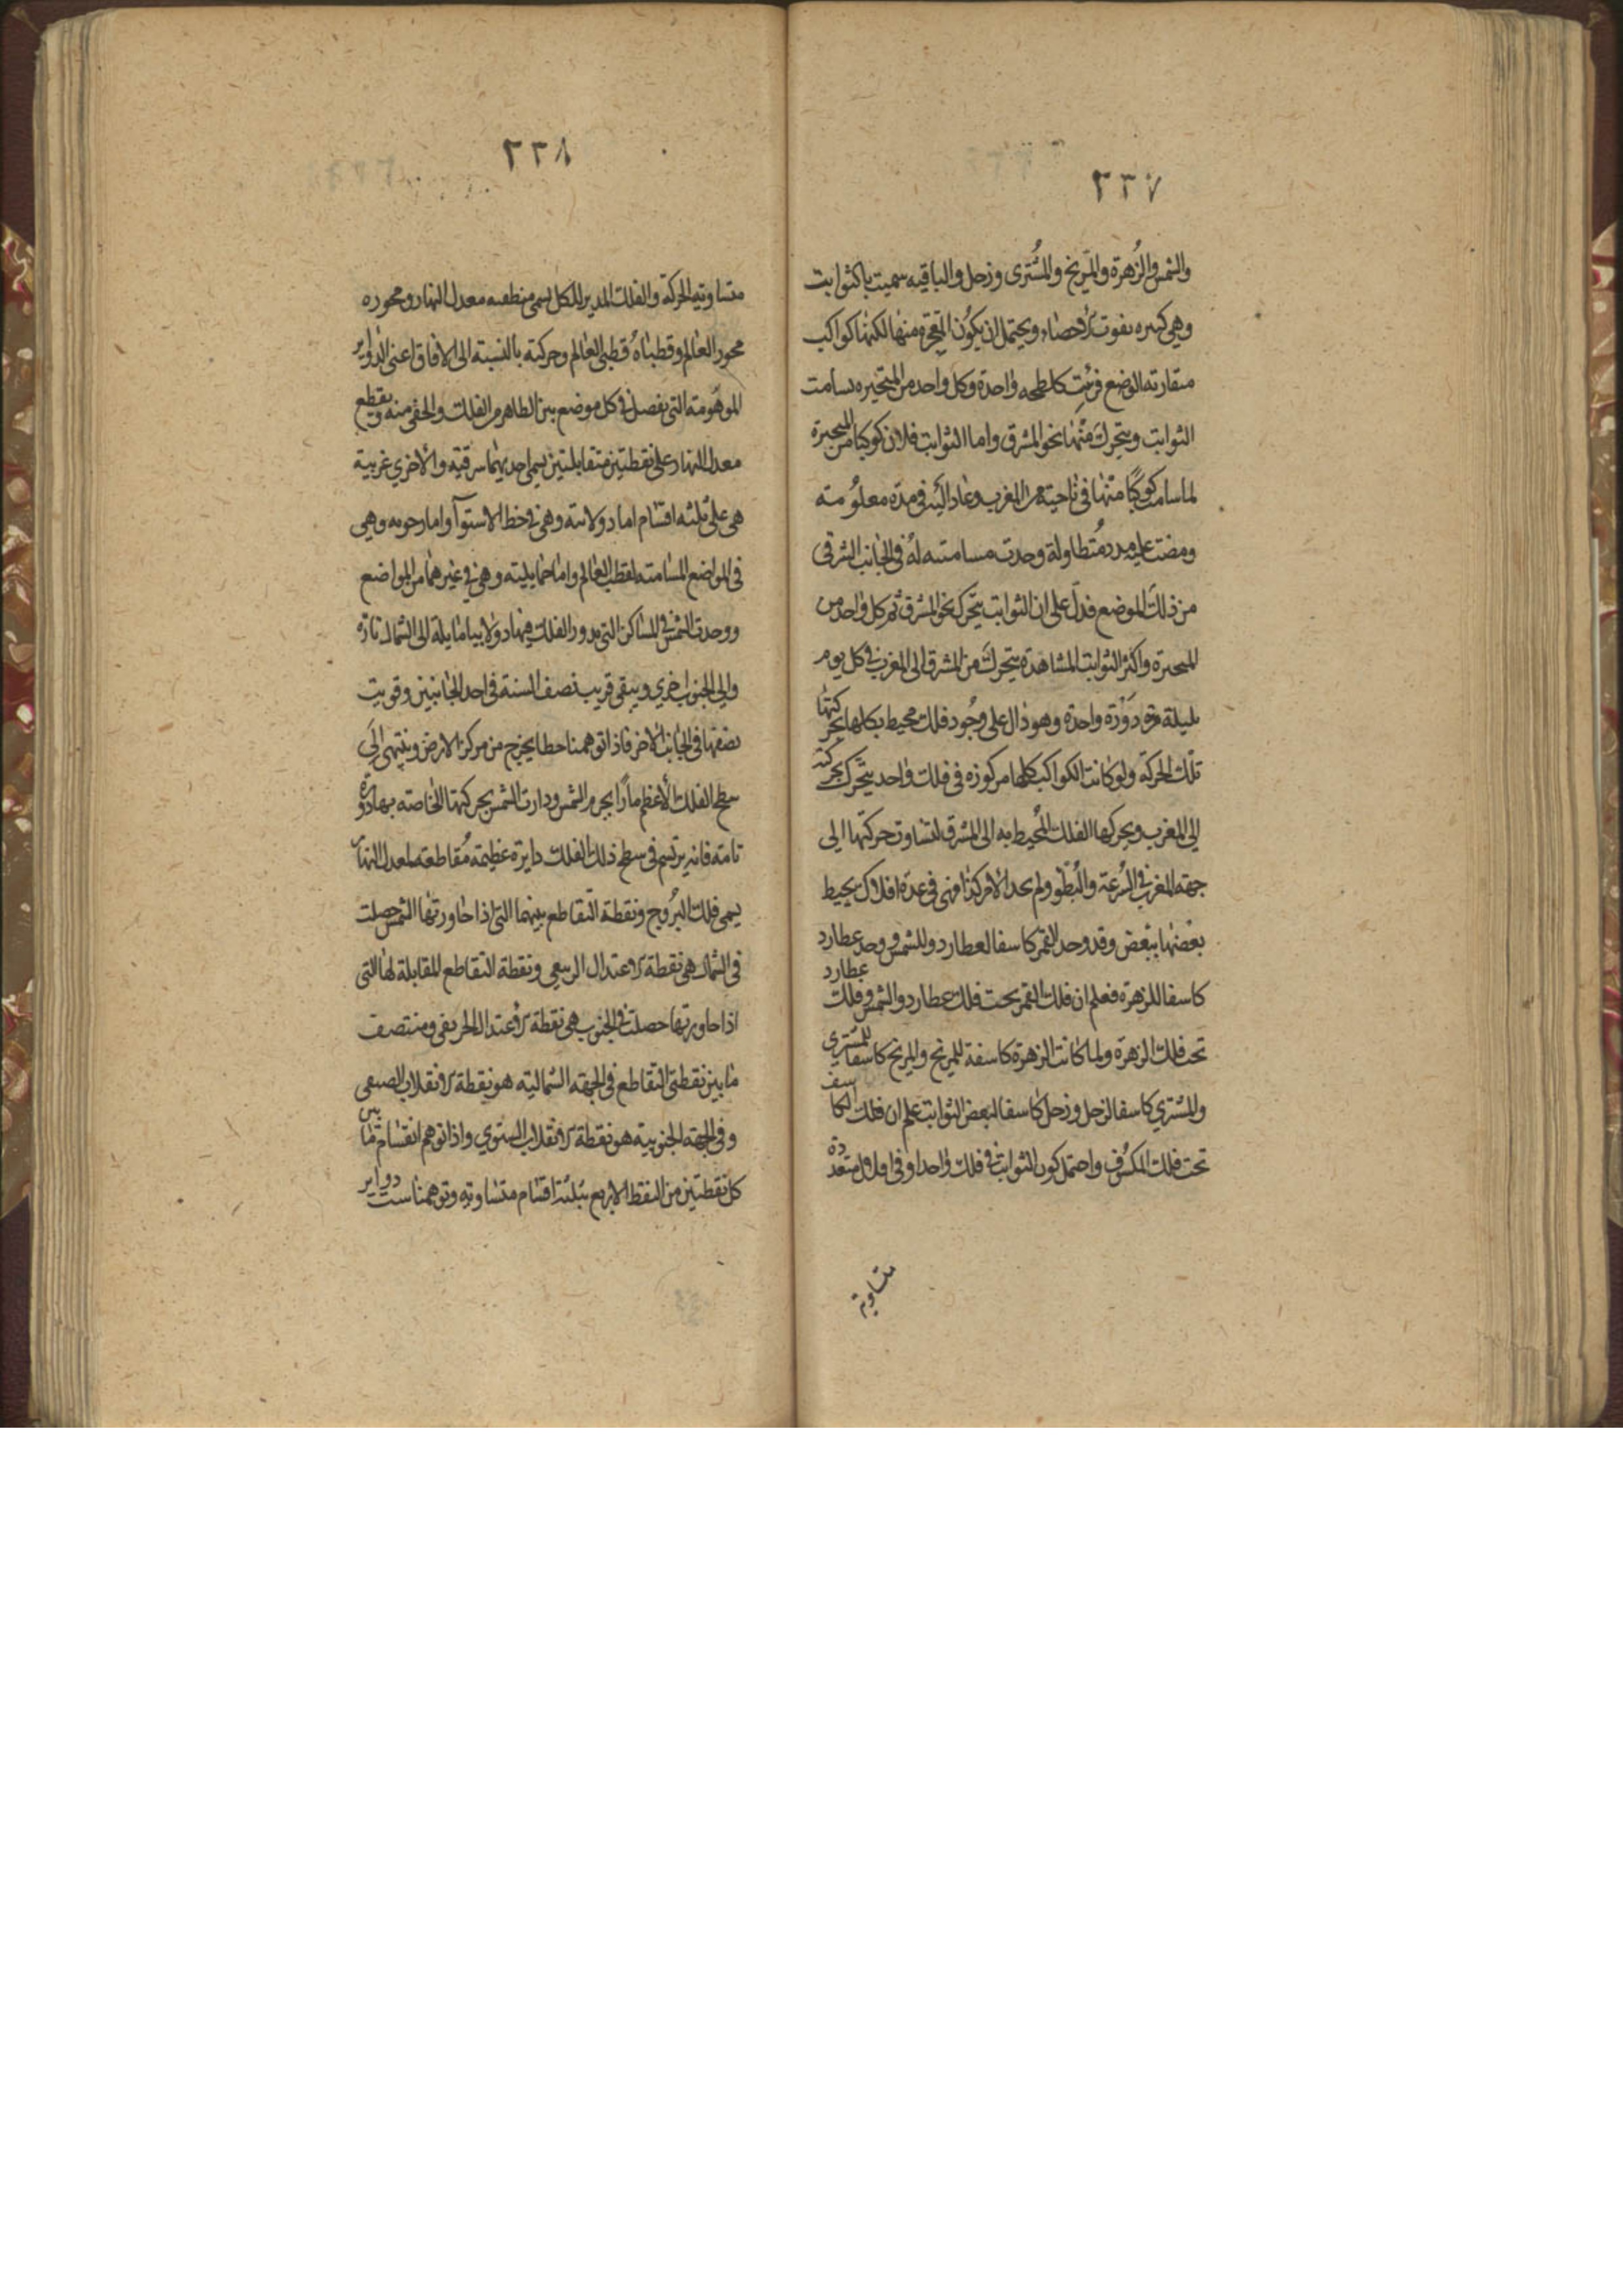 ٢٣٧
والشمس والزُهرة والمريخ والمشُترى وزحل والباقيه سميت بالثوابت
وهي كثيره تفوت الاحصاء ويحتمل ان يكوُن المجرة منها لكنها كواكب
متقاربة الوضع فرُئِت كلطحه واحدة وكل واحد من المتحيره تسامت
الثوابت ويتحرك منها نحو المشرق واما الثوابت فلان كوكبا من المتحيرة
لما سامت كوكبًا منها في ناحية من المغرب وعاد اليَه في مدة معلوُمته
ومضت عليه مدد مُتطاولة وجدت مسامتته لهُ في الجانب الشرقى
من ذلك الموضع فدلّ على ان الثوابت يتحرك نحو المشرق ثم كل واحد من
المتحيرة واكثر الثوابت المشاهدة يتحركَ من المشرق الى المغرب في كل يوم
بليلة مرة دَوْرة واحدة وهو دال على وجُود فلك محيط بكلها يحركها
تلك الحركة ولو كانت الكواكب كلها مركوزه في فلك واحد يتحرك بحركته
الى المغرب ويحركها الفلك المُحيط به الى المشرق لتساوت حركتها الى
جهة المغرب في السُرعة والبُطُو ولم نجد الامر كذا فهى في عدة افلاك يحيط
بعضها ببعض وقد وجد القمر كاسفا لعطارد وللشمس ووجد عطارد
كاسفا للزهرة فعلم ان فلك القمر تحت فلك عطارد والشمس وفلك عطارد
تحت فلك الزهرة ولما كانت الزهرة كاسفة للمريخ والمريخ كاسفا للمشترى
والمشتري كاسفا لزحل وزحل كاسفا لبعض الثوابت علم ان فلك الكاسف
تحت فلك المكسُوف واحتمل كون الثوابت في فلك واحد او في افلاك متعددة
متساوية
٢٣٨
متساوية الحركة والفلك المدير للكل يسمى منطقته معدل النهار ومحوره
محور العالم وقطباهُ قطبى العالم وحركته بالنسبة الى الافاق اعنى الدواير
الموهُومته التى تفصل في كل موضع بين الظاهر من الفلك والخفى منه وتقطع
معدل النهار على نقطتين متقابلتين يسمى احديهما شرقيّة والاخرى غربية
هى على ثلثه اقسام اما دولابية وهى في خط الاستوآ واما رحويه وهى
في المواضع المسامته لقطب العالم واما حمايلية وهى في غيرهما من المواضع
ووجدت الشمس في المساكن التى يدور الفلك فيها دولابيا مايلة الى الشمال تارة
والى الجنوب اخرى ويبقى قريب نصف السنة في احد الجانبين وقريب
نصفها في الجانب الاخر فاذا توهمنا خطا يخرج من مركز الارض وينتهى الىَ
سطح الفلك الأعظم مارًا بجرم الشمس ودارت الشمس بحركتها الخاصه بها دورة
تامة فانه يرتسم في سطح ذلك الفلك دايرة عظيمة مُقاطعه لمعدل النهار
يسمى فلك البُروج ونقطة التقاطع بينهما التى اذا جاورتها الشمس حصلت
في الشمال هى نقطة الاعتدال الربيعى ونقطة التقاطع المقابلة لها التى
اذا جاورتها حصلت في الجنوب هى نقطة الاعتدال الخريفى ومنتصف
ما بين نقطتى التقاطع في الجهة الشمالية هو نقطة الانقلاب الصيفى
وفي الجهة الجنوبية هو نقطة الانقلاب الشتوي واذا توهم انقسام ما بين
كل نقطتين من النقط الاربع بثلثة اقسام متساوية وتوهمنا ست دواير